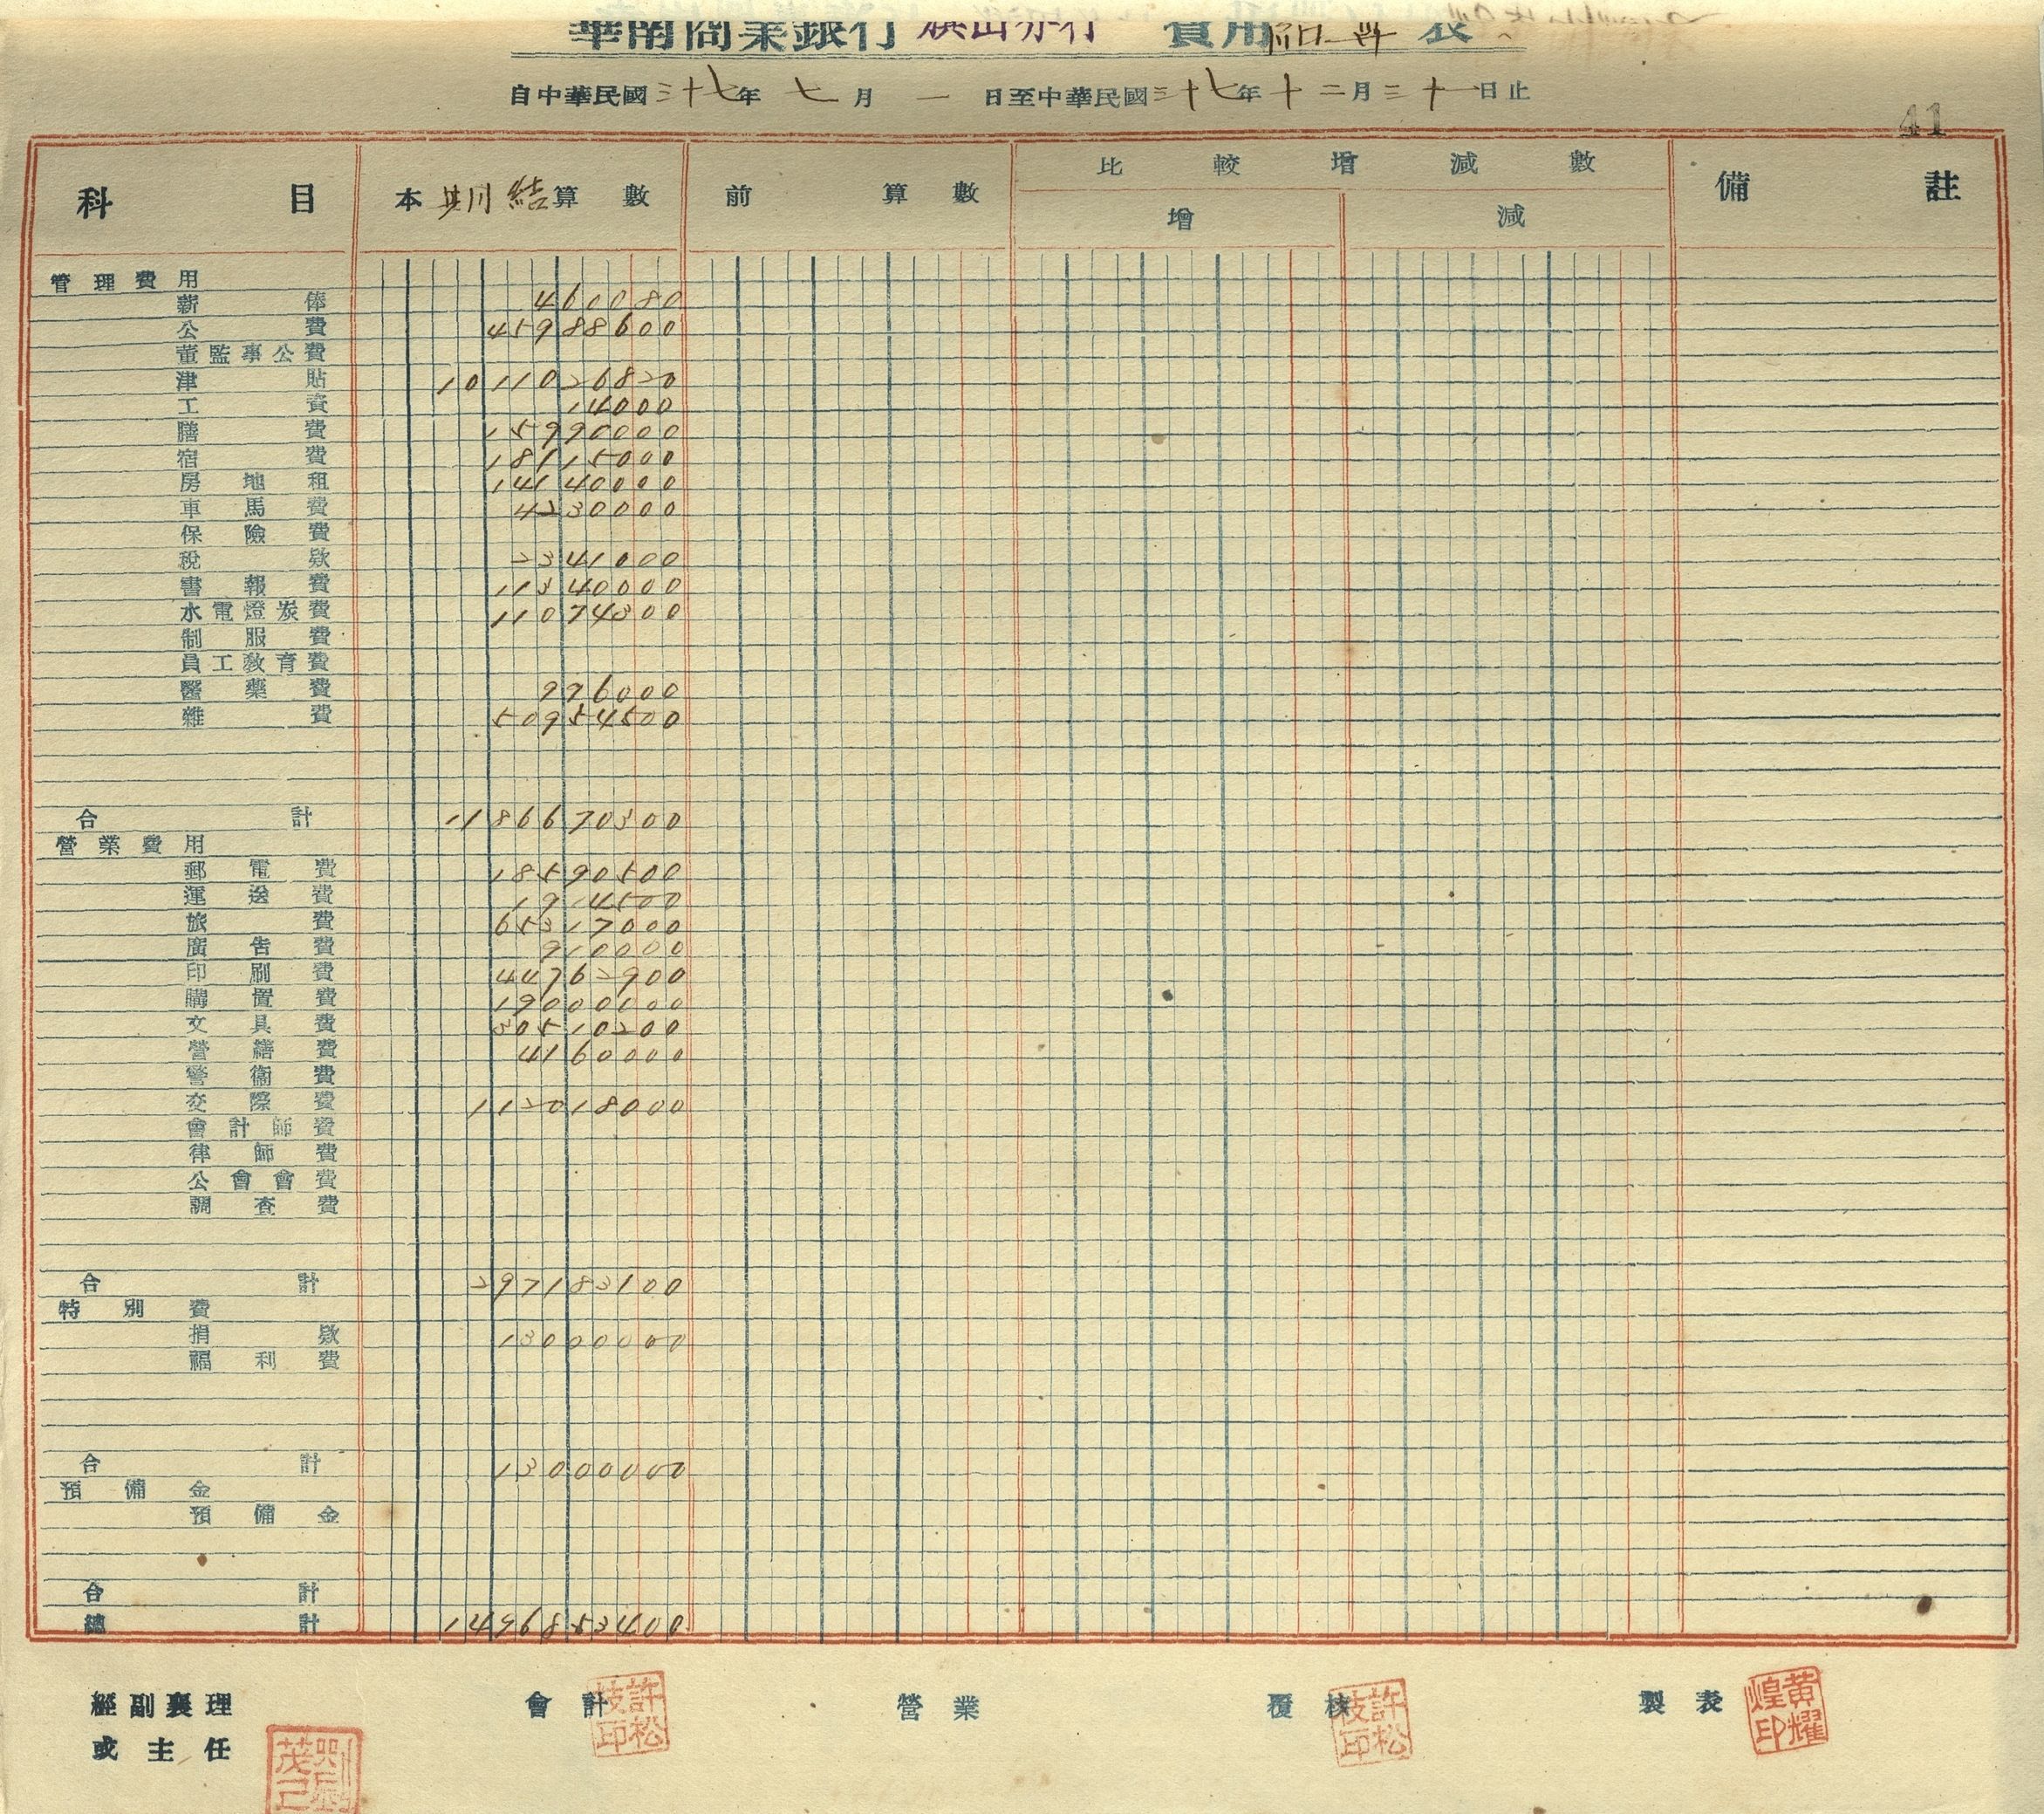 華南商業銀行 旗山分行 費用 表
自中華民國三十七年七月一日至中華民國三十七年十二月三十一日止
41
科目 本期結算數 前 算數 比較增減數 備註
增 減
管理費用
薪俸 460080
公費 45988600
董監事公費
津貼 1011026820
工資 14000
膳費 15990000
宿費 18115000
房地租 14140000
車馬費 4230000
保險費
稅款 2341000
書報費 11340000
水電燈炭費 11074300
制服費
員工教育費
醫藥費 996000
雜費 50954500
合計 1186670300
營業費用
郵電費 18590500
運送費 1914500
旅費 65317000
廣告費 910000
印刷費 44762900
購置費 19000000
文具費 30510200
營繕費 4160000
警衞費
交際費 112018000
會計師費
律師費
公會會費
調查費
合計 297183100
特別費
捐款 13000000
福利費
合計 13000000
預備金
預備金
合計
總計 1496853400
經副襄理 會計 營業 覆核 製表
或主任
許松枝印
許松枝印
黃耀煌印